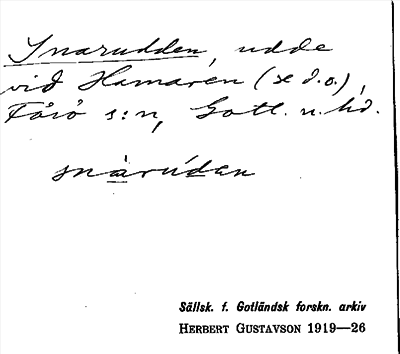 Snarudden, udde
vid Hamaren (se d.o.),
Fårö s:n, Gotl. n. hd.
snàrúdan
Sällsk. f. Gotländsk forskn. arkiv
HERBERT GUSTAVSON 1919—26